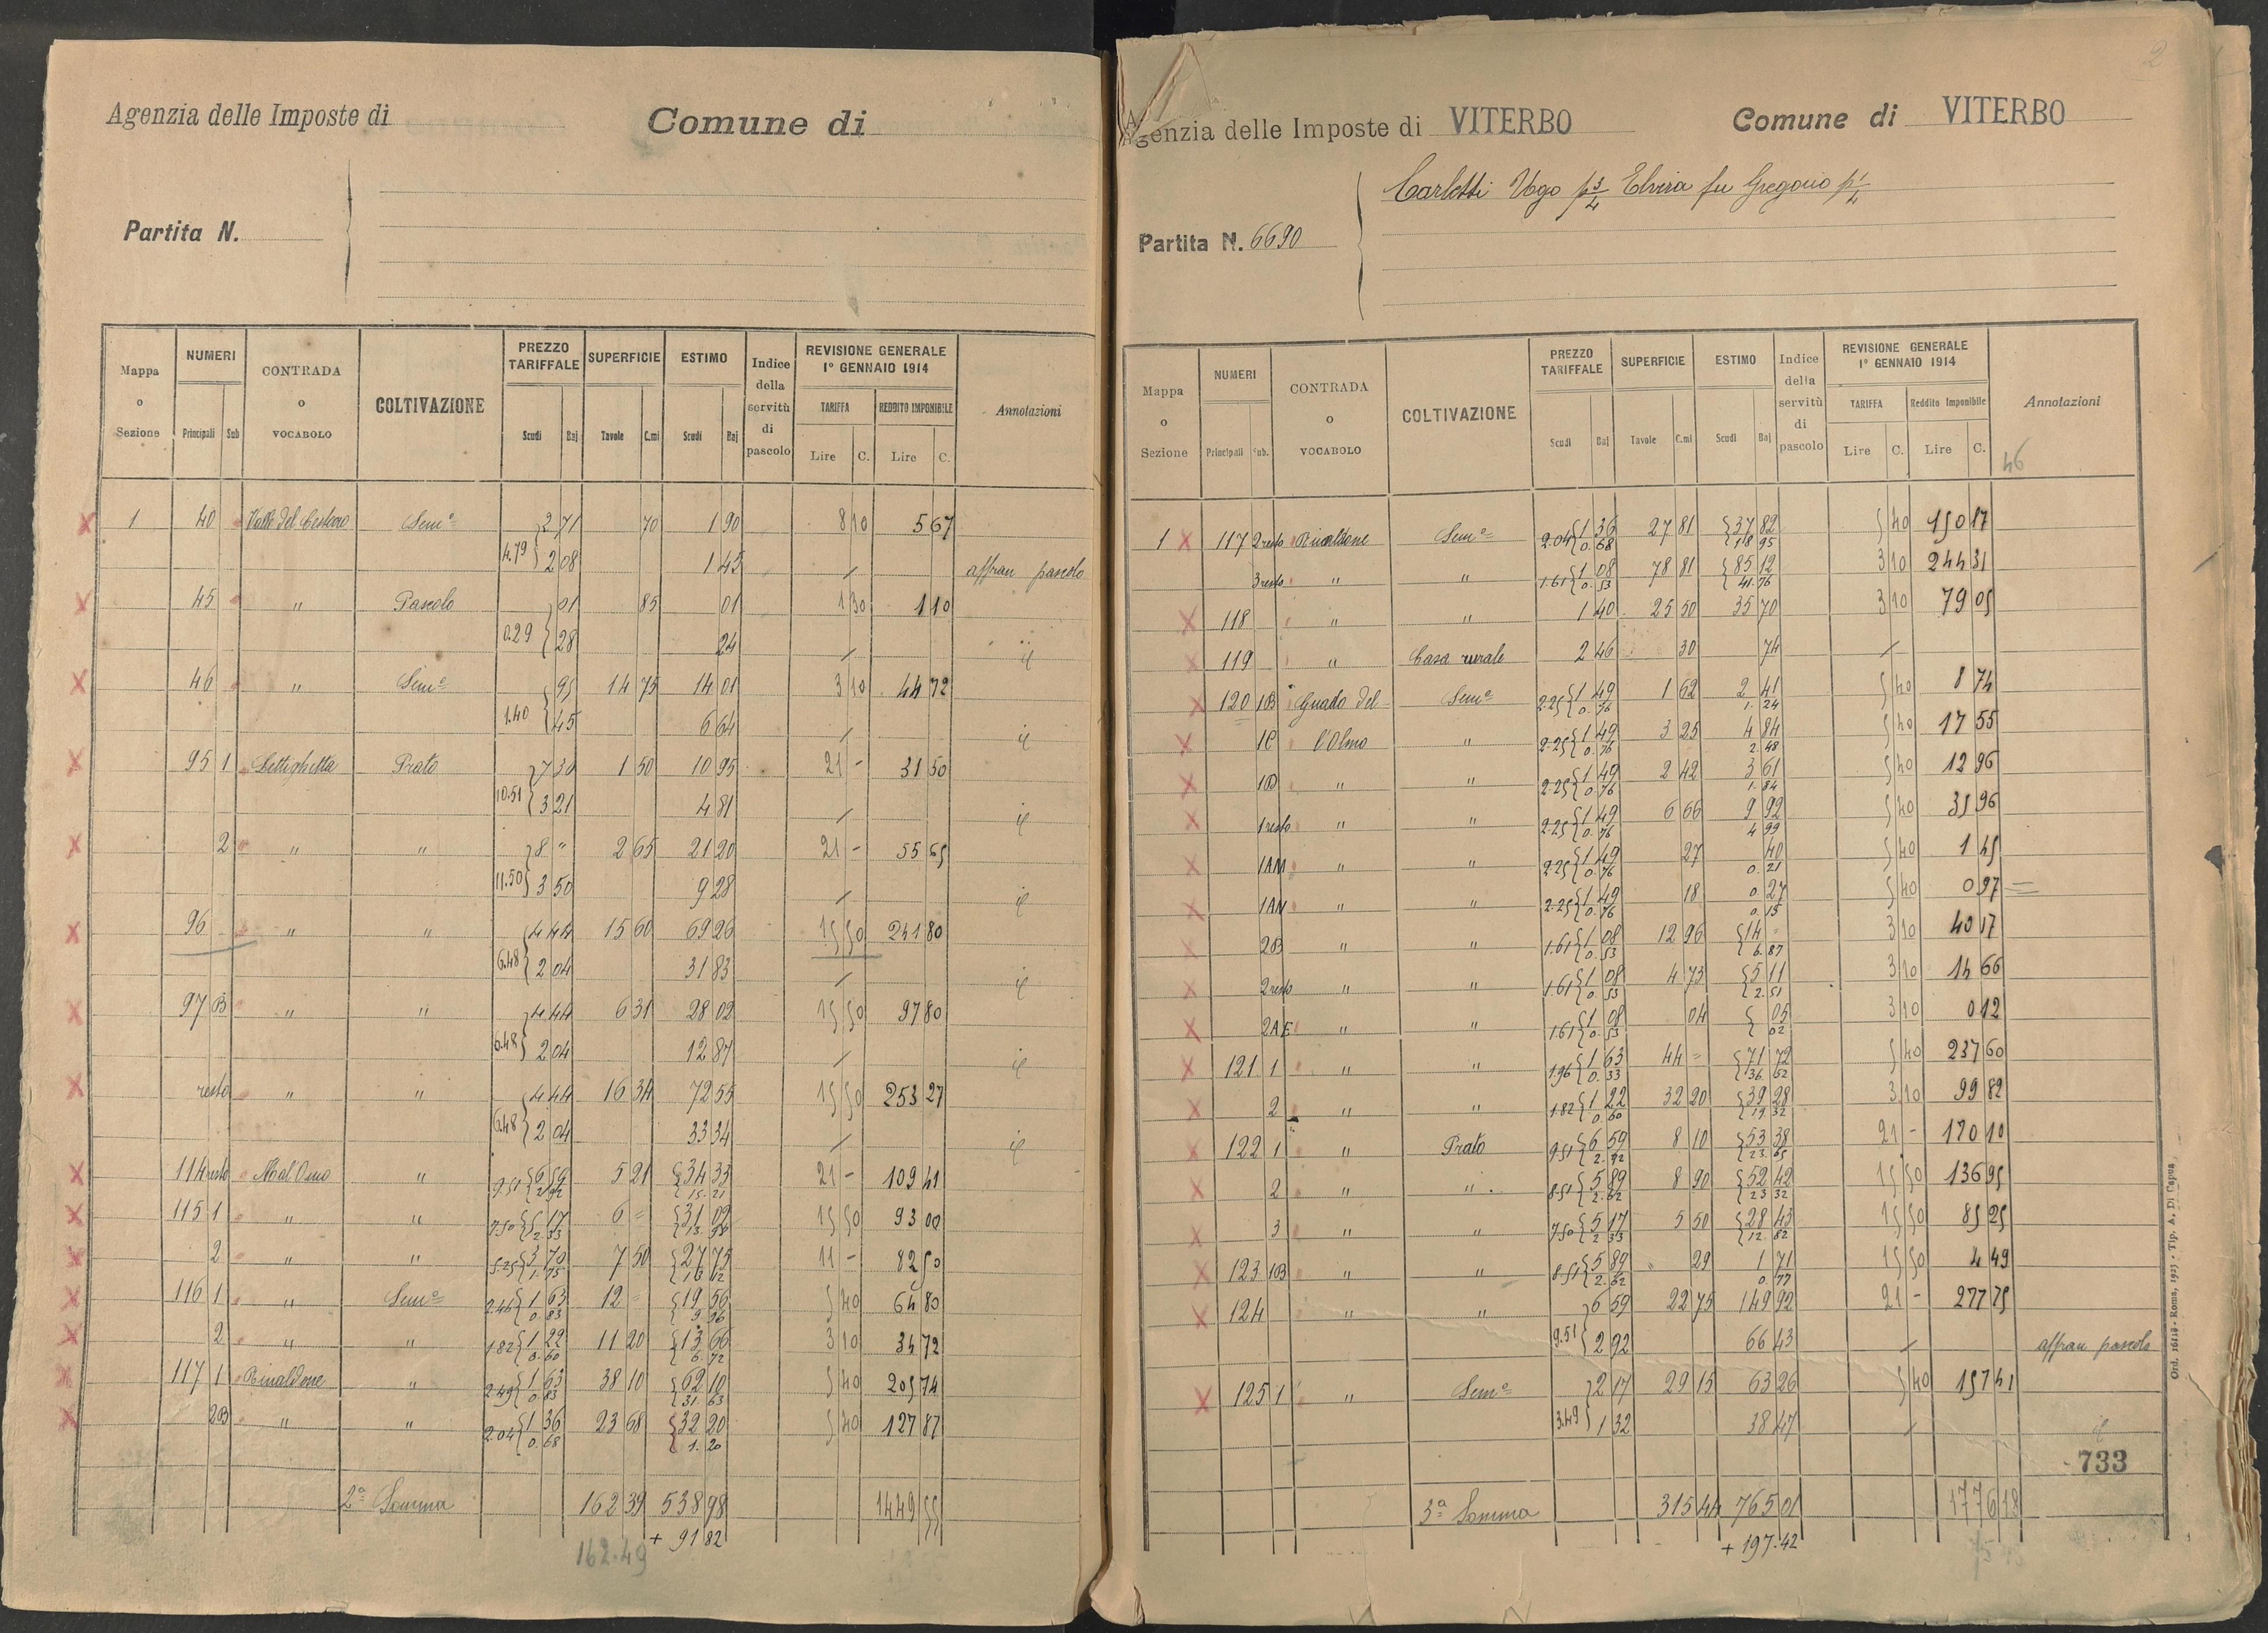 Agenzia delle Imposte di
Comune di
Partita N.
Mappa o Sezione | NUMERI Principali Sub | CONTRADA o VOCABOLO | COLTIVAZIONE | PREZZO TARIFFALE Scudi Baj | SUPERFICIE Tavole C.mi | ESTIMO Scudi Baj | Indice della servitù di pascolo | REVISIONE GENERALE 1° GENNAIO 1914 TARIFFA Lire C. REDDITO IMPONIBILE Lire C. | Annotazioni
X 1 40 Valle del Sem° 2 71 70 1 90 8 10 5 67
4.79 2 08 1 45 affran pascolo
X 45 " Pascolo 01 85 01 1 30 1 10
0.29 28 24 id
X 46 " Sem° 95 14 75 14 01 3 10 44 72
1.40 45 6 64 id
X 95 1 Lettighetta Prato 7 30 1 50 10 95 21 - 31 50
10.51 3 21 4 81 id
X 2 " " 8 " 2 65 21 20 21 - 55 65
11.50 3 50 9 28 id
X 96 " " 4 44 15 60 69 26 15 50 241 80
6.48 2 04 31 83 id
X 97 B " " 4 44 6 31 28 02 15 50 97 80
6.48 2 04 12 87 id
X resto " " 4 44 16 34 72 55 15 50 253 27
6.48 2 04 33 34 id
X 114 resto " 9.51 6 59 5 21 34 33 21 - 109 41
2 92 15.21
X 115 1 " " 7.50 5 17 6 = 31 02 15 50 93 00
2.33 13.98
X 2 " " 5.25 3 70 7 50 27 75 11 - 82 50
1.75 13 12
X 116 1 " Sem° 2.46 1 63 12 = 19 56 5 40 64 80
0.83 9 96
X 2 " " 1.82 1 22 11 20 13 66 3 10 34 72
0.60 6.72
X 117 1 Rinaldone " 2.49 1 63 38 10 62 10 5 40 205 74
0.83 31 63
X 2B " " 2.04 1 36 23 68 32 20 5 40 127 87
0.68 1.20
2ª Somma 162 39 538 98 1449 55
162.49 + 91 82
2
Agenzia delle Imposte di VITERBO
Comune di VITERBO
Carletti Ugo p 3/4 Elvira fu Gregorio p 1/4
Partita N. 6690
Mappa o Sezione | NUMERI Principali Sub. | CONTRADA o VOCABOLO | COLTIVAZIONE | PREZZO TARIFFALE Scudi Baj | SUPERFICIE Tavole C.mi | ESTIMO Scudi Baj | Indice della servitù di pascolo | REVISIONE GENERALE 1° GENNAIO 1914 TARIFFA Lire C. Reddito Imponibile Lire C. | Annotazioni
46
1 X 117 2 resto Rinaldone Sem° 2.04 1 36 27 81 37 82 5 40 150 17
0.68 18 95
3 resto " " 1.61 1 08 78 81 85 12 3 10 244 31
0.53 41.76
X 118 " " 1 40 25 50 35 70 3 10 79 05
X 119 " Casa rurale 2 46 30 74
X 120 1B Guado del Sem° 2.25 1 49 1 62 2 41 5 40 8 74
0.76 1.24
X 1C l'Olmo " 2.25 1 49 3 25 4 84 5 40 17 55
0.76 2.48
X 1D " " 2.25 1 49 2 42 3 61 5 40 12 96
0.76 1.84
X 1 resto " " 2.25 1 49 6 66 9 92 5 40 35 96
0.76 4 99
X 1AM " " 2.25 1 49 27 40 5 40 1 45
0.76 0.21
X 1AN " " 2.25 1 49 18 0.27 5 40 0 97
0.76 0.15
X 2B " " 1.61 1 08 12 96 14 = 3 10 40 17
0.53 6.87
X 2 resto " " 1.61 1 08 4 73 5 11 3 10 14 66
0.53 2.51
X 2AE " " 1.61 1 08 04 05 3 10 0 12
0.53 02
X 121 1 " " 1.96 1 63 44 = 71 72 5 40 237 60
0.33 36.52
X 2 " " 1.82 1 22 32 20 39 28 3 10 99 82
0.60 19 32
X 122 1 " Prato 9.51 6 59 8 10 53 38 21 - 170 10
2.92 23.65
X 2 " " 8.51 5 89 8 90 52 42 15 50 136 95
2.62 23 32
X 3 " " 7.50 5 17 5 50 28 43 15 50 85 25
2 33 12.82
X 123 1B " " 8.51 5 89 29 1 71 15 50 4 49
2.62 0.77
X 124 " " 6 59 22 75 149 92 21 - 277 75
9.51 2 92 66 43 affran pascolo
X 125 1 " Sem° 2 17 29 15 63 26 5 40 157 41
3.49 1 32 38 47 id
733
3ª Somma 315 44 765 01 1776 18
+ 197.42
Ord. 16118 - Roma, 1923 - Tip. A. Di Capua